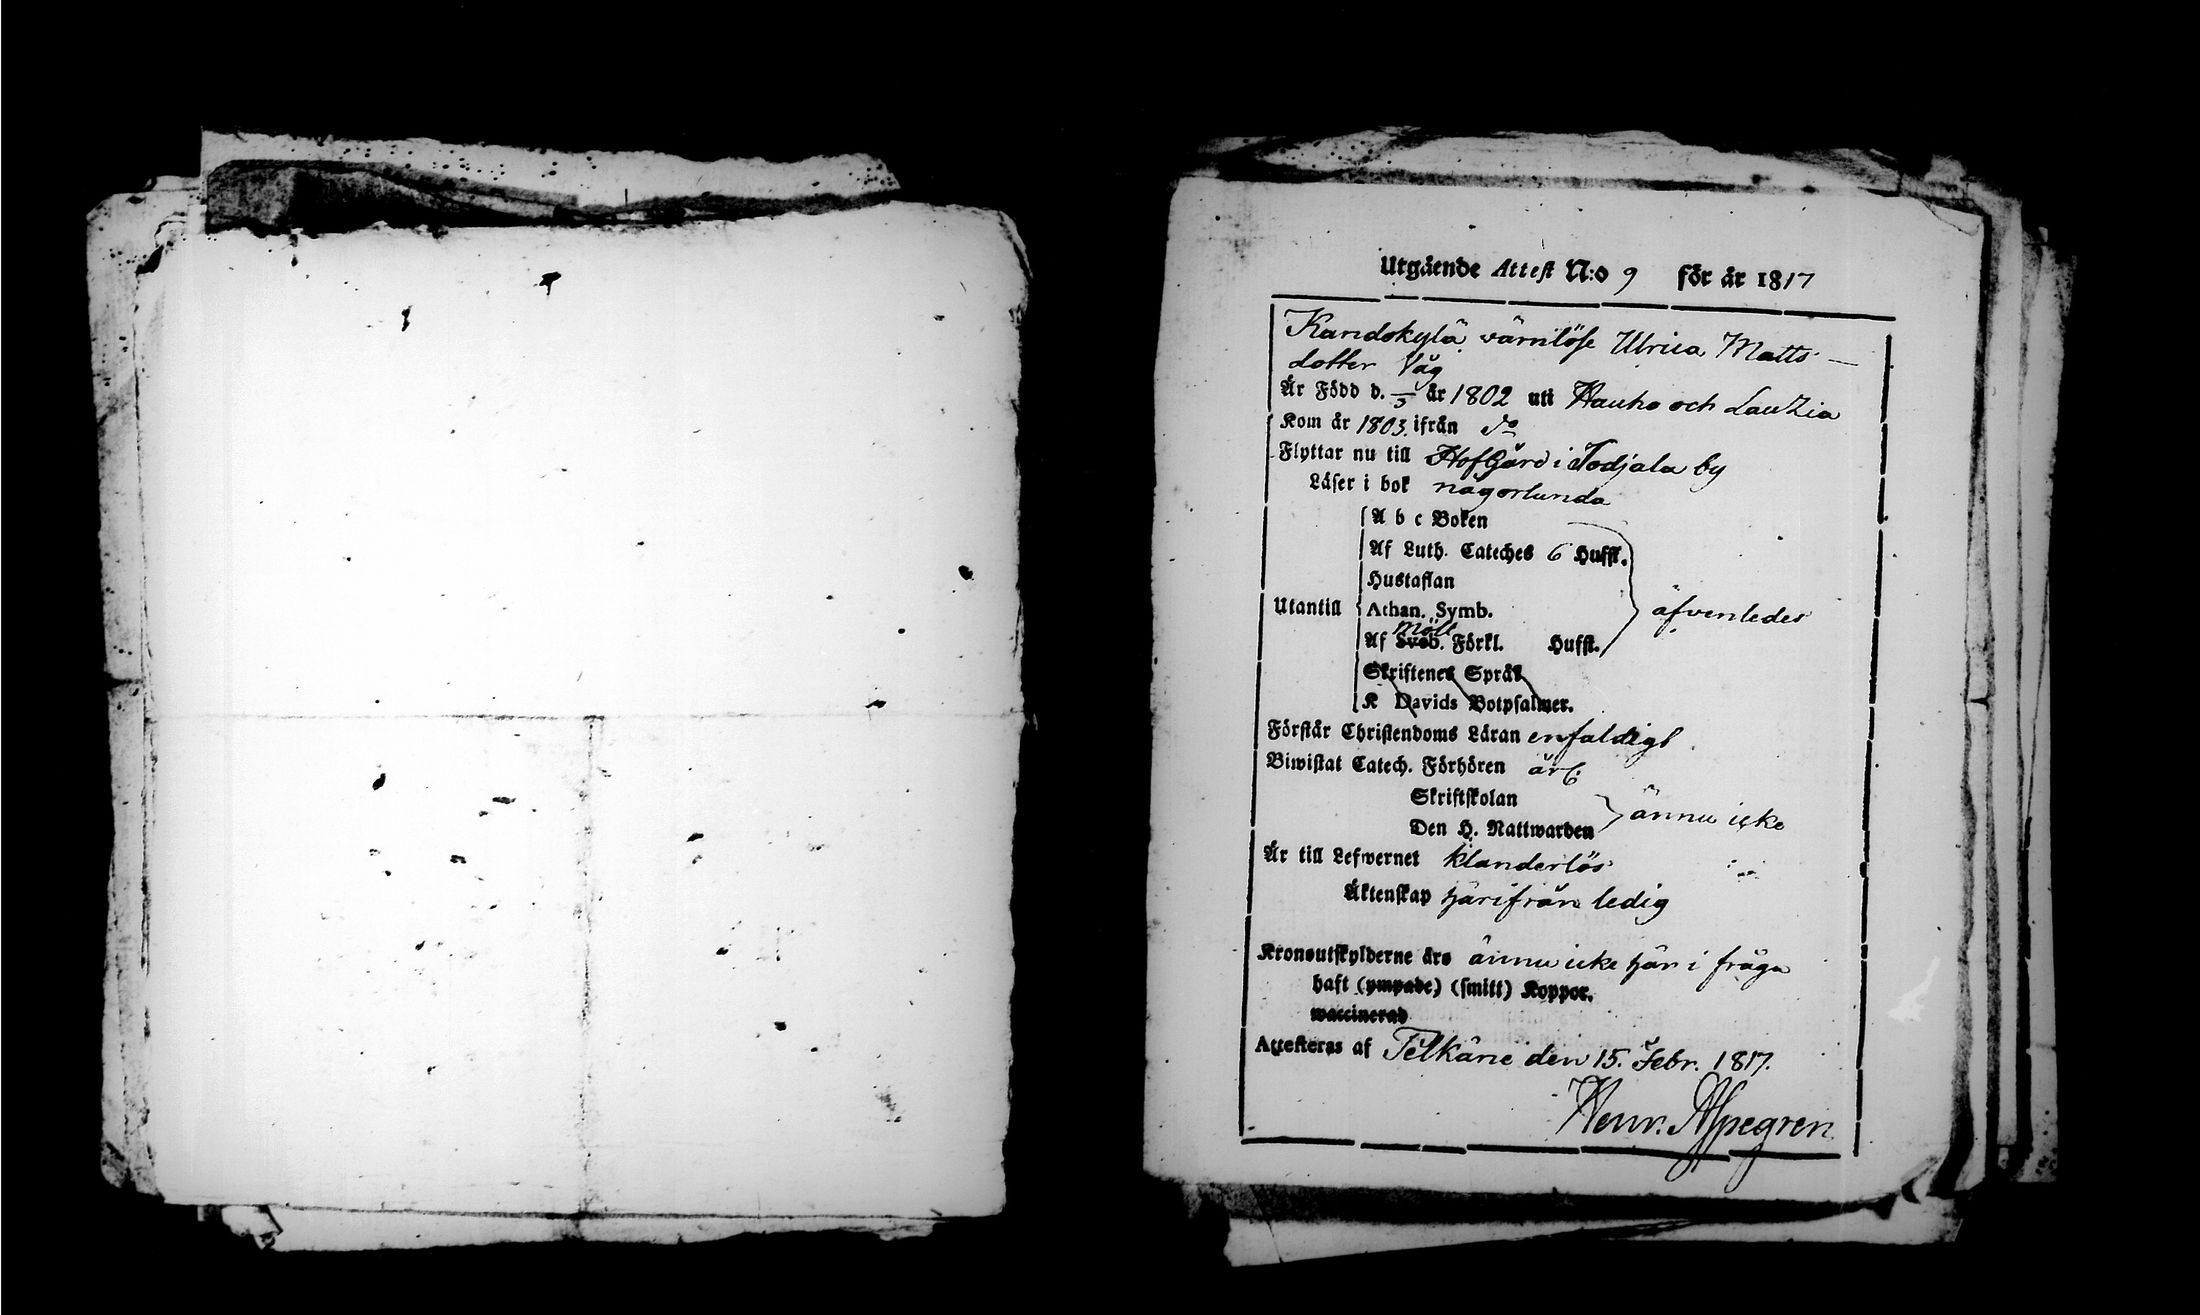 Utgående Attest N:o 9 för år 1817
Kandokylä värnlöse Ulrica Matts-
dotter Våg
Är Född d. /5 år 1802 uti Hauho och Lautzia
Kom år 1803. ifrån do
Flyttar nu till Hofgård i Todjala by
Läser i bok någorlunda
A b c Boken
Af Luth. Cateches 6 Hufst.
Hustaflan
Utantill Athan. Symb. äfvenledes
Möll
Af Sveb. Förkl. Hufst.
Skriftenes Språk
K Davids Botpsalmer.
Förstår Christendoms Läran enfaldigt
Biwistat Catech. Förhören
Skriftskolan
Den H. Nattwarden ännu icke
Är till Lefwernet klanderlös
Äktenskap härifrån ledig
Kronoutskylderne äro ännu icke här i fråga
haft (ympade) (smitt) Koppor.
waccinerad
Attesteras af Pelkäne den 15. Febr. 1817.
Henr. Alpegren